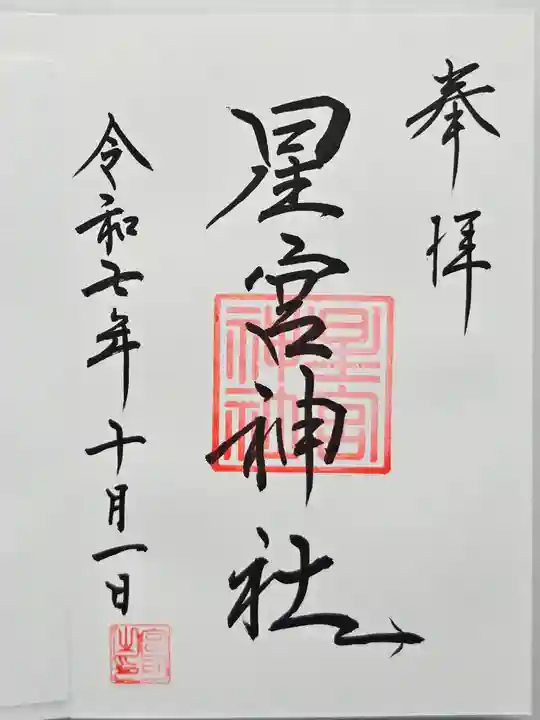 奉拝
星宮神社
星宮
神社
令和七年十月一日
宮司
之印